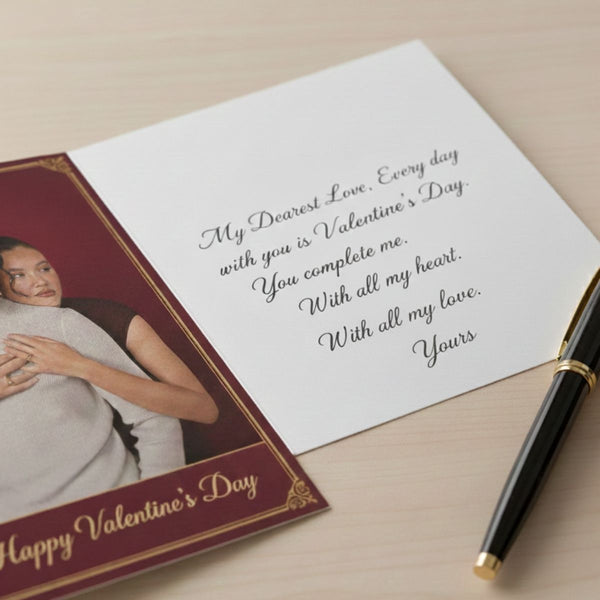 My Dearest Love. Every day
with you is Valentine's Day.
You complete me.
With all my heart.
With all my love.
Yours
Happy Valentine's Day